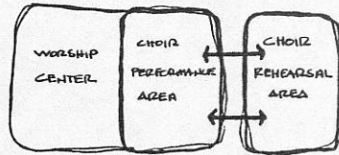 WORSHIP
CENTER
CHOIR
PERFORMANCE
AREA
CHOIR
REHEARSAL
AREA